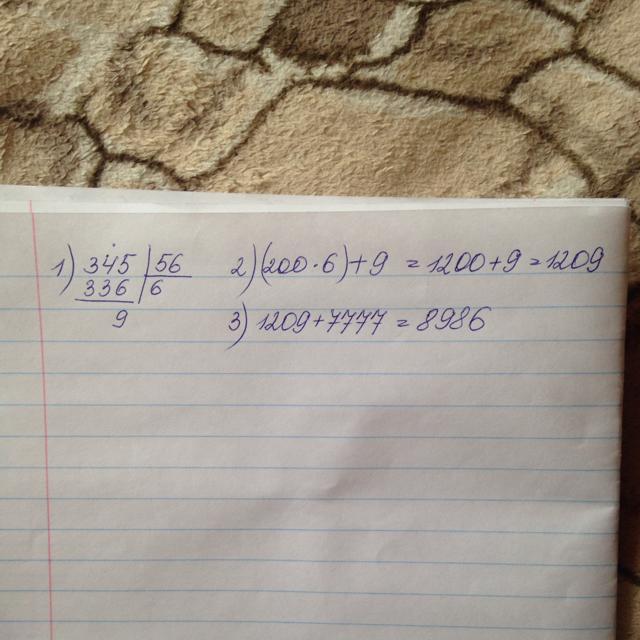 1) 345 | 56
336 | 6
9
2) (200·6)+9 = 1200+9 = 1209
3) 1209+7777 = 8986